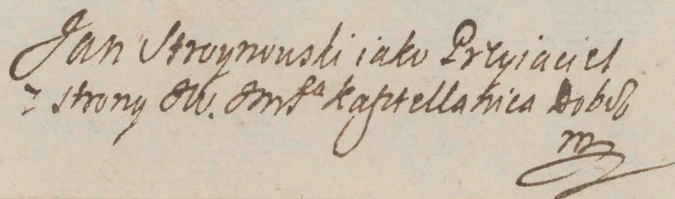 Jan Stroynowski iako Przyiaciel
z strony JW. Jmsca Kasztellanica Dobr
mp